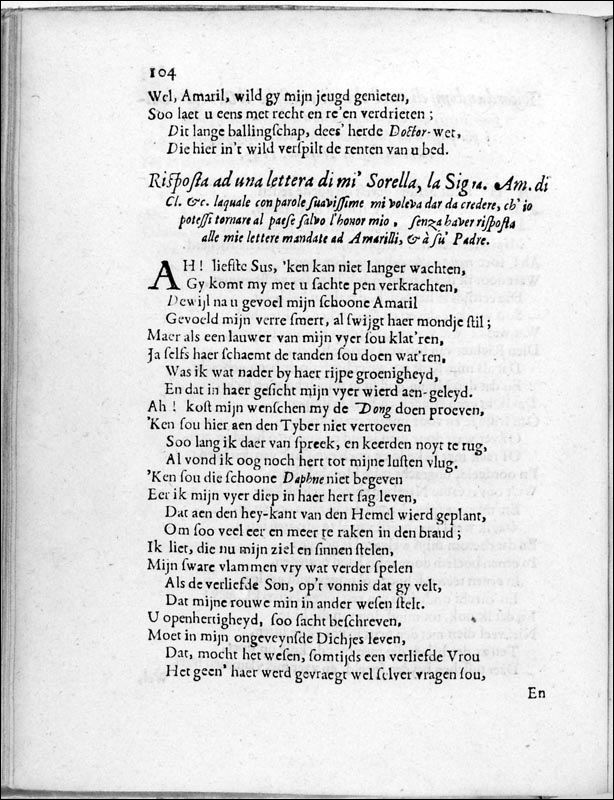 104
Wel, Amaril, wild gy mijn jeugd genieten,
Soo laet u eens met recht en re'en verdrieten ;
Dit lange ballingſchap, dees' herde Doctor-wet,
Die hier in't wild verſpilt de renten van u bed.
Riſpoſta ad una lettera di mi' Sorella, la Sigra. Am. di
Cl. &c. laquale con parole ſuaviſſime mi voleva dar da credere, ch' io
poteſſi tornare al paeſe ſalvo l'honor mio, ſenza haver riſpoſta
alle mie lettere mandate ad Amarilli, & à ſu' Padre.
AH! liefſte Sus, 'ken kan niet langer wachten,
Gy komt my met u ſachte pen verkrachten,
Dewijl na u gevoel mijn ſchoone Amaril
Gevoeld mijn verre ſmert, al ſwijgt haer mondje ſtil ;
Maer als een lauwer van mijn vyer ſou klat'ren,
Ja ſelfs haer ſchaemt de tanden ſou doen wat'ren,
Was ik wat nader by haer rijpe groenigheyd,
En dat in haer geſicht mijn vyer wierd aen-geleyd.
Ah ! koſt mijn wenſchen my de Dong doen proeven,
'Ken ſou hier aen den Tyber niet vertoeven
Soo lang ik daer van ſpreek, en keerden noyt te rug,
Al vond ik oog noch hert tot mijne luſten vlug.
'Ken ſou die ſchoone Daphne niet begeven
Eer ik mijn vyer diep in haer hert ſag leven,
Dat aen den hey-kant van den Hemel wierd geplant,
Om ſoo veel eer en meer te raken in den brand ;
Ik liet, die nu mijn ziel en ſinnen ſtelen,
Mijn ſware vlammen vry wat verder ſpelen
Als de verliefde Son, op't vonnis dat gy velt,
Dat mijne rouwe min in ander weſen ſtelt.
U openhertigheyd, ſoo ſacht beſchreven,
Moet in mijn ongeveynſde Dichjes leven,
Dat, mocht het weſen, ſomtijds een verliefde Vrou
Het geen' haer werd gevraegt wel ſelver vragen ſou,
En